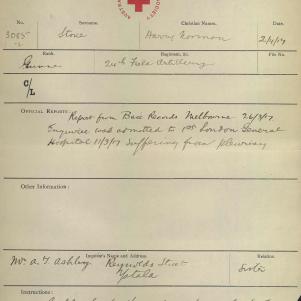 No. Surname. Christian Names. Date.
3085 Stone Harry Norman 2/4/17
Rank. Regiment, &c. File No.
Gunner 24th Field Artillery
C/L
OFFICIAL REPORTS: Report from Base Records Melbourne 26/3/17
Enquiree was admitted to 1st London General
Hospital 11/3/17 suffering from pleurisy
Other Information:
Inquirer's Name and Address Relation
Mrs A. T. Ashley Reynolds Street Sister
Instructions: